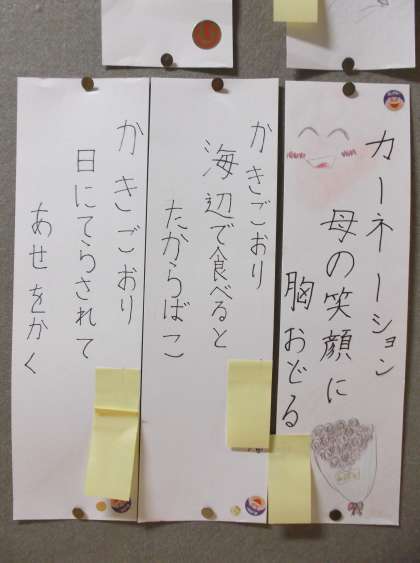 カーネーション
母の笑顔に
胸おどる
かきごおり
海辺で食べると
たからばこ
かきごおり
日にてらされて
あせをかく